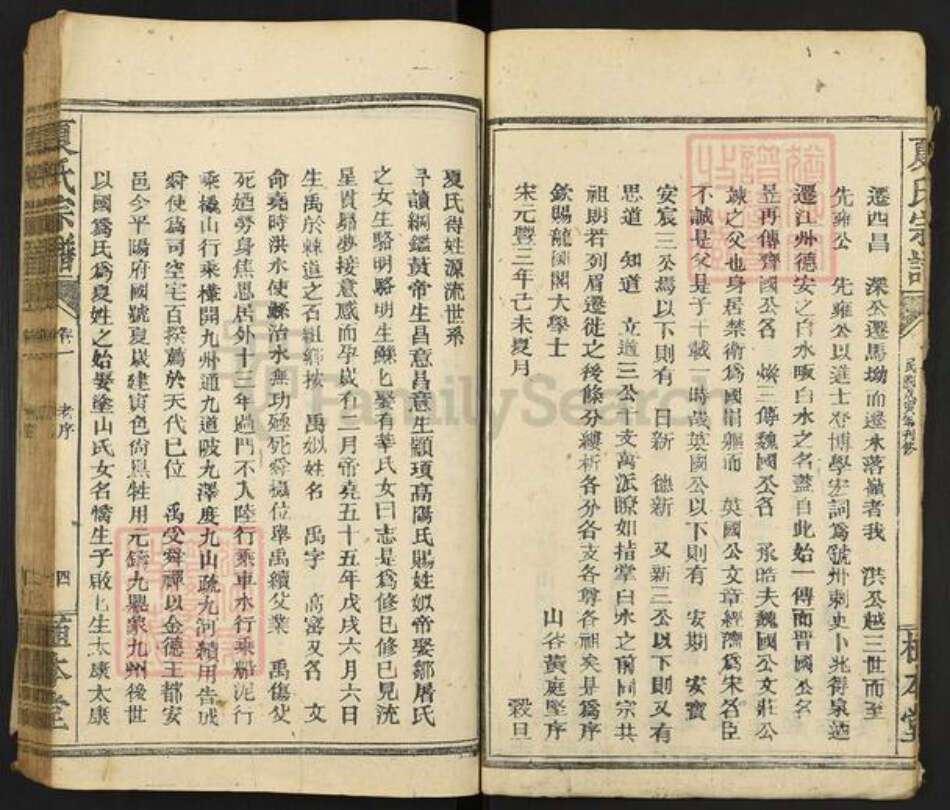 夏氏宗譜
遷西昌 深公遷馬坳而遷水落嶺者我 洪公越三世而至
先雍公 先雍公以進士登博學宏詞為虢州刺史卜兆得泉遂
遷江州德安之白水畈白水之名蓋自此始一傳而晋國公名
昱再傳齊國公名 三傳魏國公名 承皓夫魏國公文莊公
竦之父也身居禁衛為國捐軀而 英國公文章經濟為宋名臣
不誠是父是子千載一時哉英國公以下則有 安期 安寳
安宸三公焉以下則有 日新 德新 又新三公以下則又有
思道 知道 立道三公千支萬派瞭如指掌白水之前同宗共
祖朗若列眉遷徙之後條分縷析各分各支各尊各祖矣是為序
欽賜龍圖閣大學士 山谷黃庭堅序
宋元豐三年己未夏月 穀旦
夏氏得姓源流世系
予讀綱鑑黃帝生昌意昌意生顓頊高陽氏賜姓姒帝娶鄒屠氏
之女生駱明駱明生鯀匕娶有莘氏女曰志是為修已修已見流
星貫昴夢接意感而孕歲有二月帝堯五十五年戊戌六月六日
生禹於棘道之石紐鄉按 禹姒姓名 禹字 高密又名 文
命堯時洪水使鯀治水無功殛死舜攝位舉禹續父業 禹傷父
死廼勞身焦思居外十三年過門不入陸行乘車水行乘船泥行
乘橇山行乘檋開九州通九道陂九澤度九山疏九河績用告成
舜使為司空宅百揆薦於天代已位 禹受舜禪以金德王都安
邑今平陽府國號夏歲建寅色尚黑牲用元鑄九鼎象九州後世
以國為氏為夏姓之始娶塗山氏女名憍生子啟匕生太康太康
夏氏宗譜 卷一 老序 四